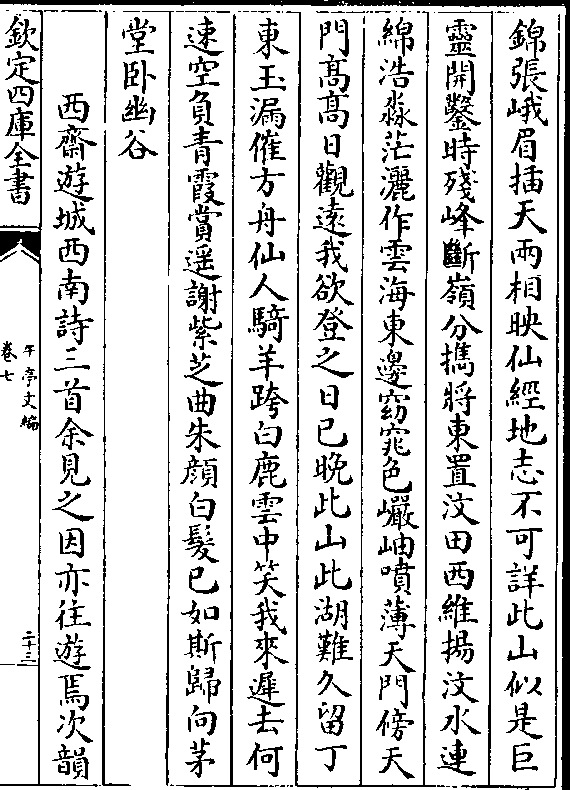 錦張峨眉插天兩相映仙經地志不可詳此山似是巨
靈開鑿時殘峰斷嶺分攜將東置汶田西維揚汶水連
綿浩淼茫灑作雲海東邊窈窕色巗岫噴薄天門傍天
門高高日觀遠我欲登之日已晚此山此湖難久留丁
東玉漏催方舟仙人騎羊跨白鹿雲中笑我來遲去何
速空負青霞賞遥謝紫芝曲朱顔白髮已如斯歸向茅
堂卧幽谷
西齋遊城西南詩三首余見之因亦往遊焉次韻
欽定四庫全書
午亭文編
卷七
二十三